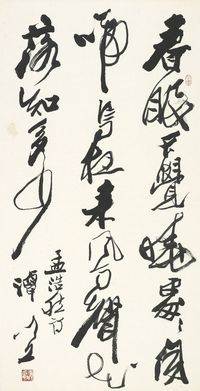 春眠不覺曉處々聞
啼鳥夜来風雨聲花
落知多少
孟浩然詩